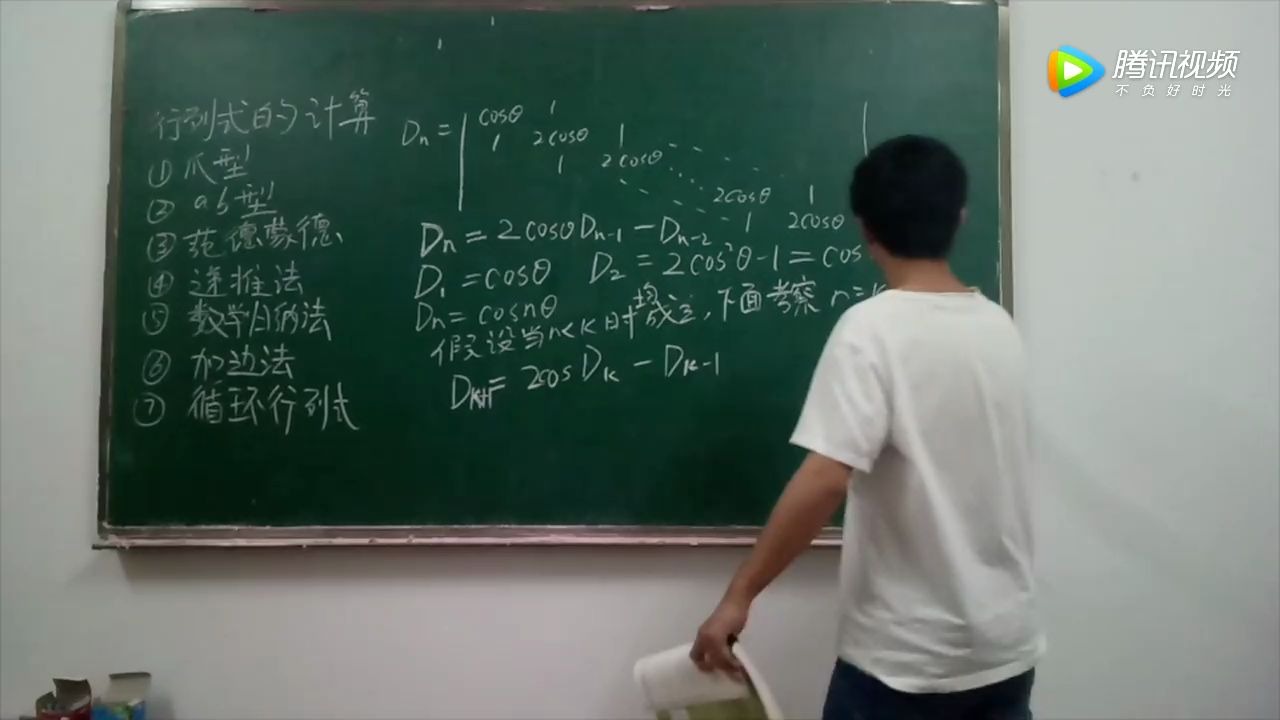 腾讯视频
不负好时光
行列式的计算
① 爪型
② ab型
③ 范德蒙德
④ 递推法
⑤ 数学归纳法
⑥ 加边法
⑦ 循环行列式
Dn = | cosθ 1
1 2cosθ 1
1 2cosθ
2cosθ 1
1 2cosθ
Dn = 2cosθDn-1 - Dn-2
D1 = cosθ D2 = 2cos²θ-1 = cos
Dn = cosnθ
假设当n<k时均成立,下面考察 n=
Dk+1 = 2cos Dk - Dk-1